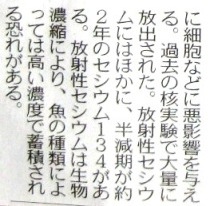 に細胞などに悪影響を与え
る。過去の核実験で大量に
放出された。放射性セシウ
ムにはほかに、半減期が約
２年のセシウム１３４があ
る。放射性セシウムは生物
濃縮により、魚の種類によ
っては高い濃度で蓄積され
る恐れがある。